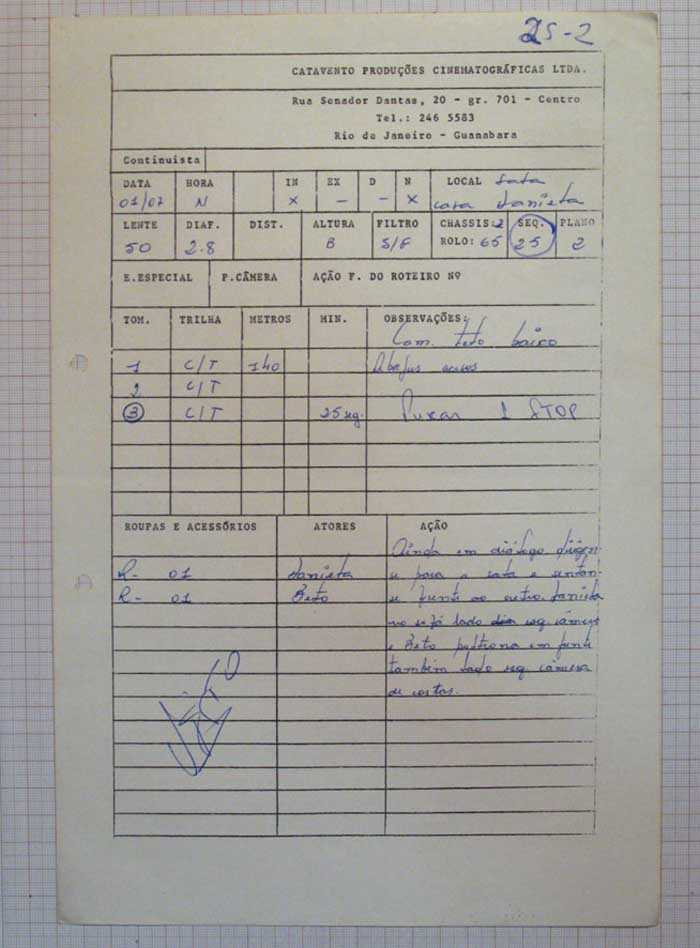 25-2
CATAVENTO PRODUÇÕES CINEMATOGRÁFICAS LTDA.
Rua Senador Dantas, 20 - gr. 701 - Centro
Tel.: 246 5583
Rio de Janeiro - Guanabara
Continuista
DATA HORA IN EX D N LOCAL Sala
01/07 N X - - X casa Daniela
LENTE DIAF. DIST. ALTURA FILTRO CHASSIS: 2 SEQ. PLANO
50 2.8 B S/F ROLO: 65 25 2
E.ESPECIAL P.CÂMERA AÇÃO F. DO ROTEIRO Nº
TOM. TRILHA METROS MIN. OBSERVAÇÕES:
Cam. teto baixo
1 C/T 140 Abajus acesos
2 C/T
3 C/T 25 seg. Puxar 1 STOP
ROUPAS E ACESSÓRIOS ATORES AÇÃO
Ainda em diálogo dirigem-
R- 01 Daniela se para a sala e sentam-
R- 01 Beto se frente ao outro. Daniela
no sofá lado esq. câmera
e Beto poltrona em frente
também lado esq. câmera
de costas.